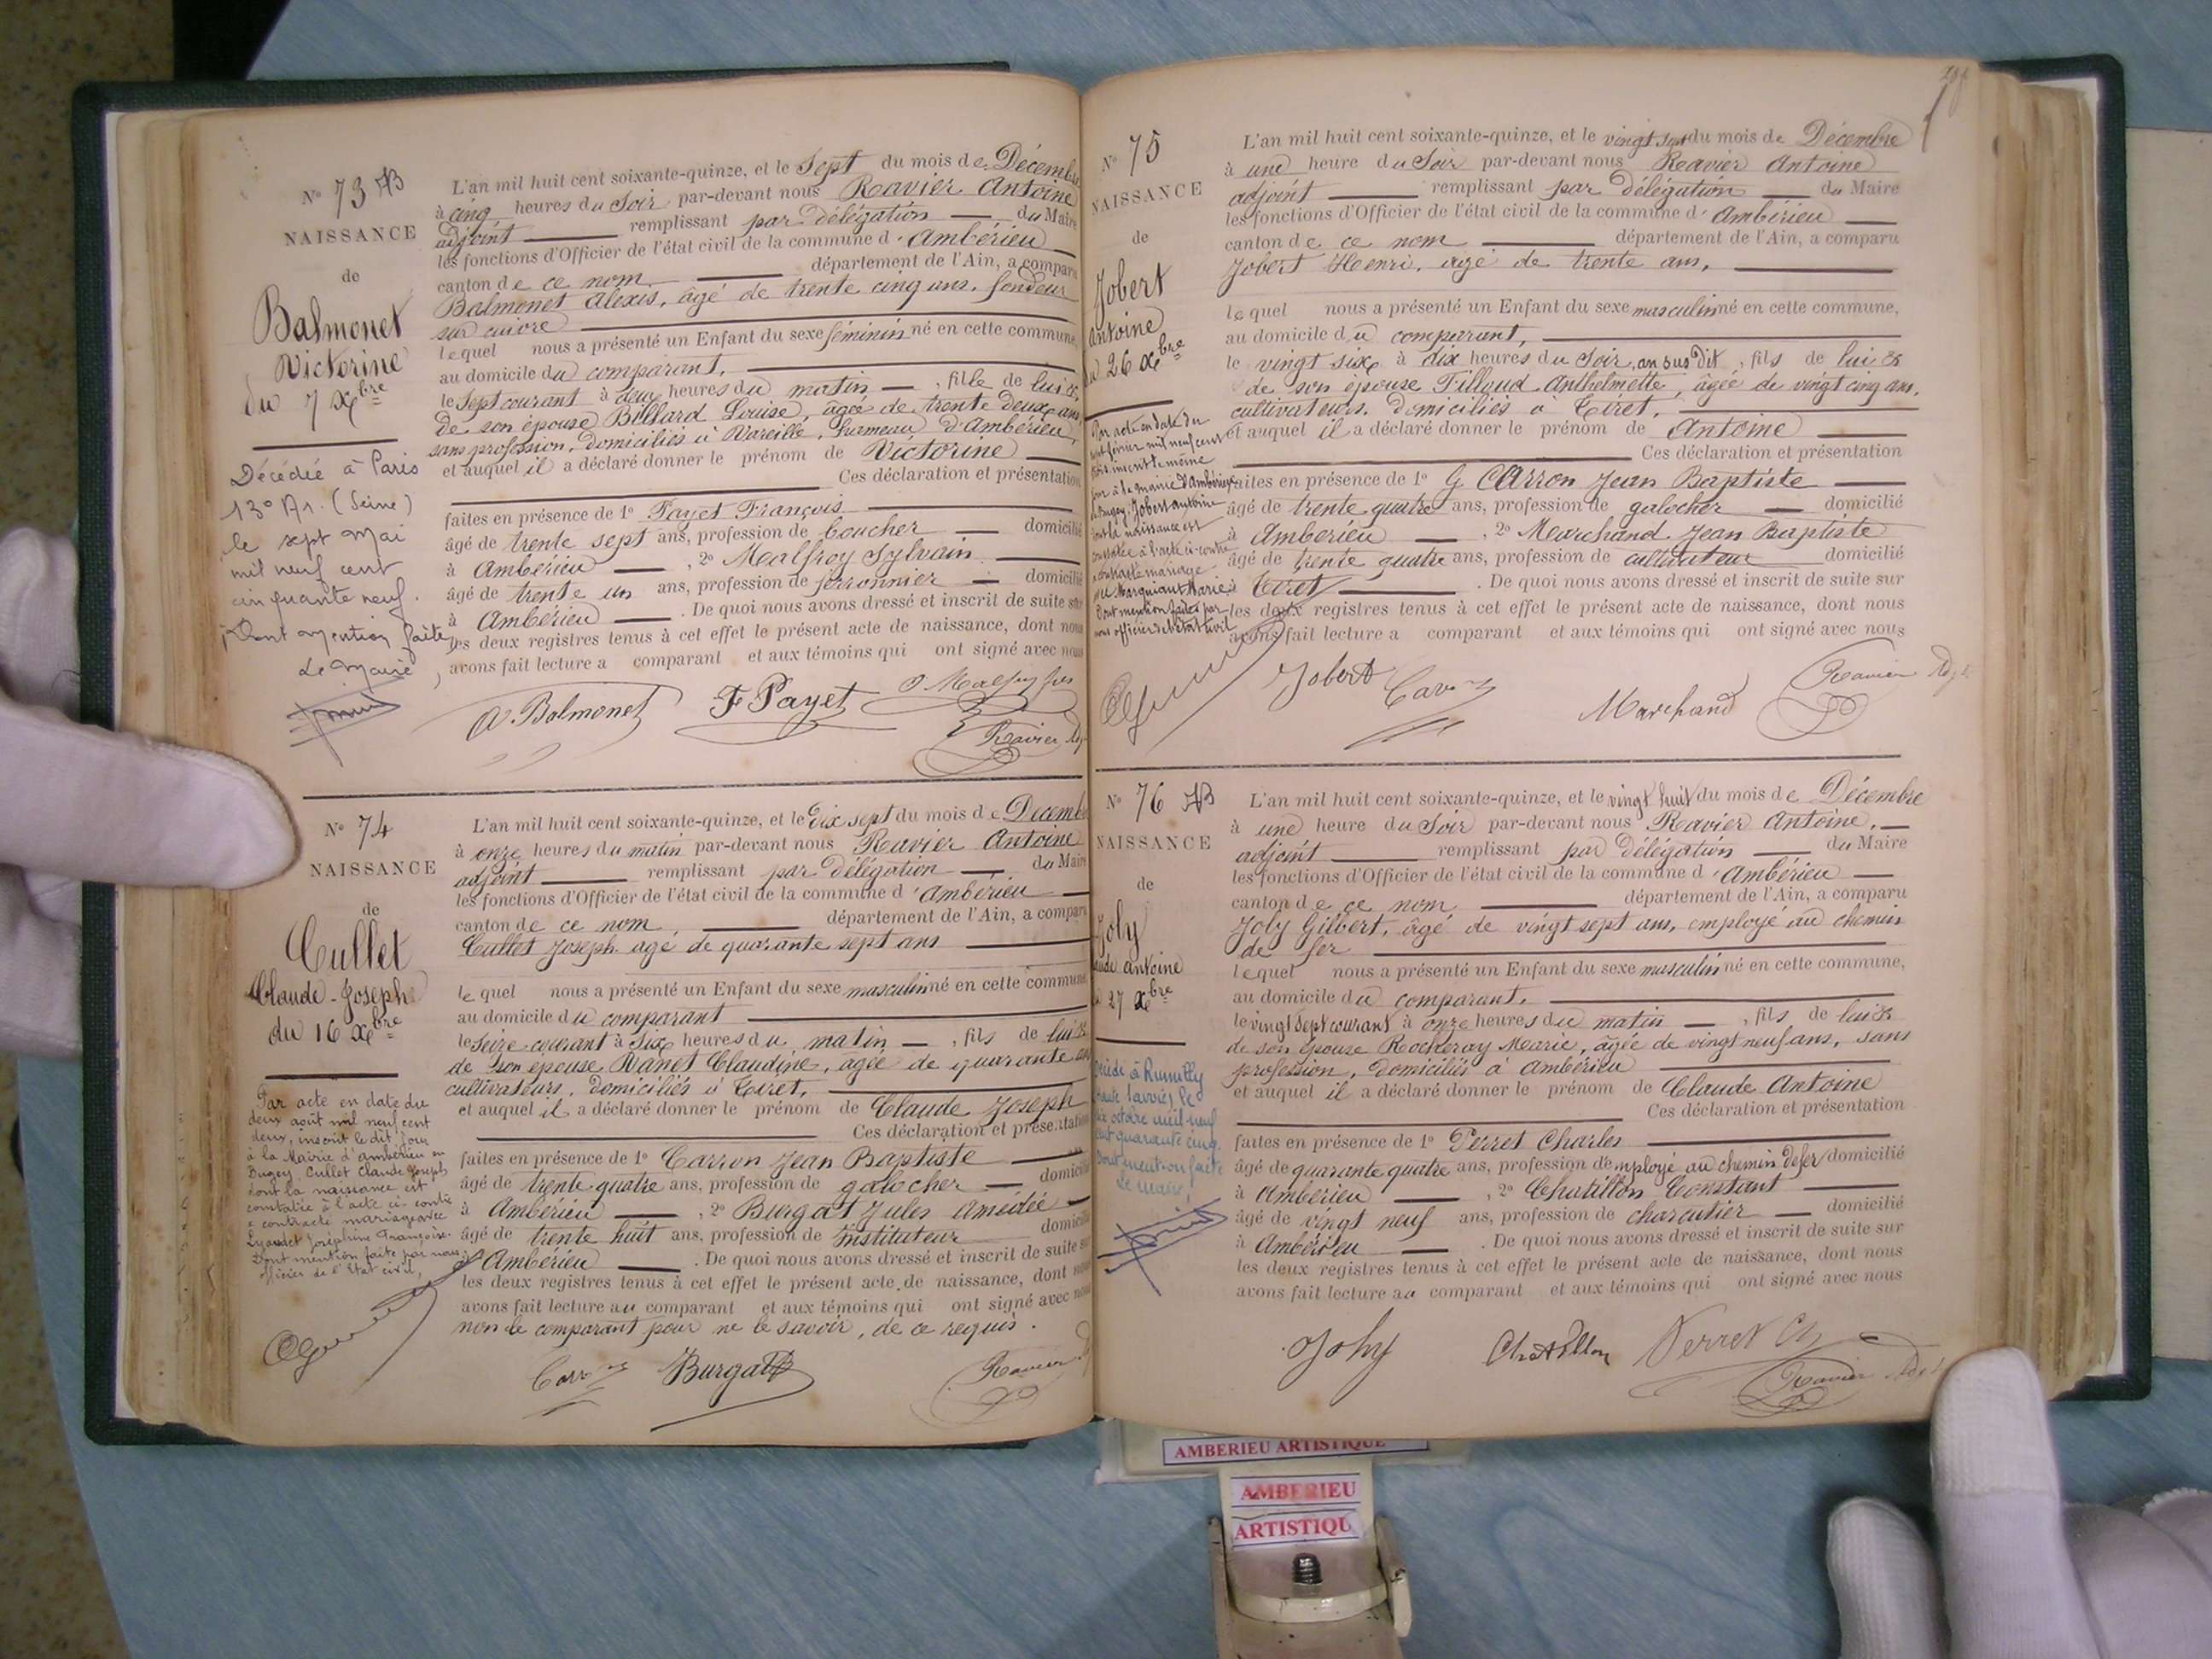 N° 73
NAISSANCE
de
Balmonet
Victorine
du 7 Xbre
Décédée à Paris
13° Ar. (Seine)
le sept Mai
mil neuf cent
cinquante neuf.
Dont mention faite,
Le Maire,
L'an mil huit cent soixante-quinze, et le Sept du mois de Décembre
à cinq heures du Soir par-devant nous Ravier Antoine
adjoint remplissant par délégation du Maire
les fonctions d'Officier de l'état civil de la commune d'Ambérieu
canton de ce nom département de l'Ain, a comparu
Balmonet Alexis, âgé de trente cinq ans, fondeur
sur cuivre
lequel nous a présenté un Enfant du sexe féminin né en cette commune,
au domicile du comparant,
le Sept courant à deux heures du matin, fille de lui &
de son épouse Billard Louise, âgée de trente deux ans,
sans profession, domiciliés à Vareille, hameau d'Ambérieu,
et auquel il a déclaré donner le prénom de Victorine
Ces déclaration et présentation
faites en présence de 1° Payet François
âgé de trente sept ans, profession de boucher domicilié
à Ambérieu, 2° Malfroy Sylvain
âgé de trente un ans, profession de ferronnier domicilié
à Ambérieu. De quoi nous avons dressé et inscrit de suite sur
les deux registres tenus à cet effet le présent acte de naissance, dont nous
avons fait lecture a comparant et aux témoins qui ont signé avec nous
A. Balmonet F Payet
Ravier Adj
N° 74
NAISSANCE
de
Cullet
Claude-Joseph
du 16 Xbre
Par acte en date du
deux août mil neuf cent
deux, inscrit le dit jour
à la Mairie d'Ambérieu en
Bugey, Cullet Claude Joseph
dont la naissance est
constatée à l'acte ci-contre
a contracté mariage avec
Joséphine Françoise.
Dont mention faite par nous,
officier de l'Etat civil,
L'an mil huit cent soixante-quinze, et le Dix sept du mois de Décembre
à onze heures du matin par-devant nous Ravier Antoine
adjoint remplissant par délégation du Maire
les fonctions d'Officier de l'état civil de la commune d'Ambérieu
canton de ce nom, département de l'Ain, a comparu
Cullet Joseph âgé de quarante sept ans
lequel nous a présenté un Enfant du sexe masculin né en cette commune
au domicile du comparant
le Seize courant à Six heures du matin, fils de lui &
de son épouse Vanet Claudine, âgée de quarante ans
cultivateurs, domiciliés à Tiret,
et auquel il a déclaré donner le prénom de Claude Joseph
Ces déclaration et présentation
faites en présence de 1° Carron Jean Baptiste
âgé de trente quatre ans, profession de galocher domicilié
à Ambérieu, 2° Burgat Jules Amédée
âgé de trente huit ans, profession de Instituteur domicilié
à Ambérieu. De quoi nous avons dressé et inscrit de suite sur
les deux registres tenus à cet effet le présent acte de naissance, dont nous
avons fait lecture au comparant et aux témoins qui ont signé avec nous
non le comparant pour ne le savoir, de ce requis.
Burgat
Ravier
N° 75
NAISSANCE
de
Jobert
Antoine
du 26 Xbre
Par acte en date du
sept février mil neuf cent
trois, inscrit le même
jour à la mairie d'Ambérieu
en Bugey, Jobert Antoine
dont la naissance est
constatée à l'acte ci-contre
a contracté mariage
avec Marguiant Marie
Dont mention faite par
nous officier de l'état civil
L'an mil huit cent soixante-quinze, et le vingt sept du mois de Décembre
à une heure du Soir par-devant nous Ravier Antoine
adjoint remplissant par délégation du Maire
les fonctions d'Officier de l'état civil de la commune d'Ambérieu
canton de ce nom département de l'Ain, a comparu
Jobert Henri, âgé de trente ans,
lequel nous a présenté un Enfant du sexe masculin né en cette commune,
au domicile du comparant,
le vingt six à dix heures du Soir, an sus dit, fils de lui &
de son épouse Tilloud Anthelmette, âgée de vingt cinq ans,
cultivateurs, domiciliés à Tiret,
et auquel il a déclaré donner le prénom de Antoine
Ces déclaration et présentation
faites en présence de 1° Carron Jean Baptiste
âgé de trente quatre ans, profession de galocher domicilié
à Ambérieu, 2° Marchand Jean Baptiste
âgé de trente quatre ans, profession de cultivateur domicilié
à Tiret. De quoi nous avons dressé et inscrit de suite sur
les deux registres tenus à cet effet le présent acte de naissance, dont nous
avons fait lecture a comparant et aux témoins qui ont signé avec nous
Jobert Marchand Ravier Adj
N° 76
NAISSANCE
de
Joly
Claude Antoine
du 27 Xbre
Décédé à Rumilly
Haute Savoie le
octobre mil neuf
cent quarante cinq.
Dont mention faite
Le Maire,
L'an mil huit cent soixante-quinze, et le vingt huit du mois de Décembre
à une heure du Soir par-devant nous Ravier Antoine,
adjoint remplissant par délégation du Maire
les fonctions d'Officier de l'état civil de la commune d'Ambérieu
canton de ce nom département de l'Ain, a comparu
Joly Gilbert, âgé de vingt sept ans, employé au chemin
de fer
lequel nous a présenté un Enfant du sexe masculin né en cette commune,
au domicile du comparant,
le vingt sept courant à onze heures du matin, fils de lui &
de son épouse Rocheray Marie, âgée de vingt neuf ans, sans
profession, domiciliés à Ambérieu
et auquel il a déclaré donner le prénom de Claude Antoine
Ces déclaration et présentation
faites en présence de 1° Perret Charles
âgé de quarante quatre ans, profession d'employé au chemin de fer domicilié
à Ambérieu, 2° Chatillon Constant
âgé de vingt neuf ans, profession de charcutier domicilié
à Ambérieu. De quoi nous avons dressé et inscrit de suite sur
les deux registres tenus à cet effet le présent acte de naissance, dont nous
avons fait lecture au comparant et aux témoins qui ont signé avec nous
Joly Chatillon Perret Ch
Ravier Adj
AMBERIEU ARTISTIQUE
AMBERIEU
ARTISTIQU